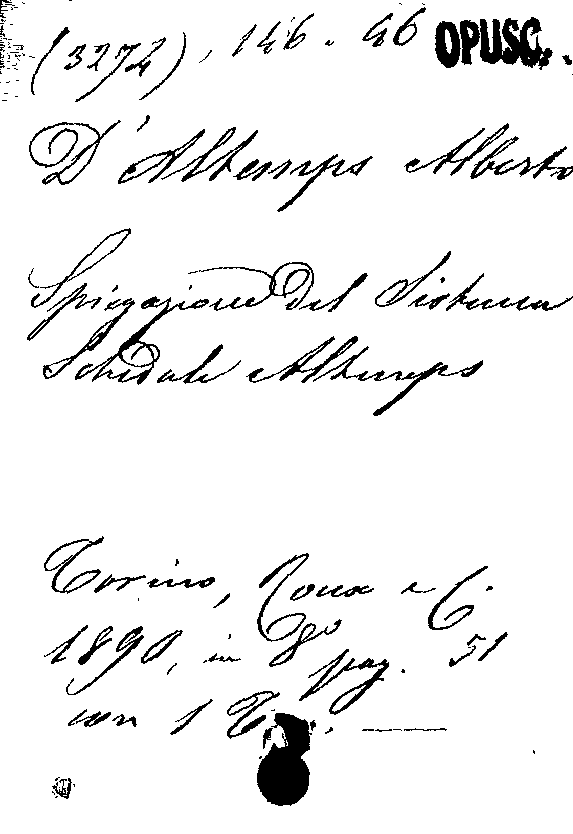 (3274), 146. 46 OPUSC.
D'Altemps Alberto
Spiegazione del Sistema
Schedale Altemps
Torino, Roux e C.
1890, in 8º pag. 51
con 1